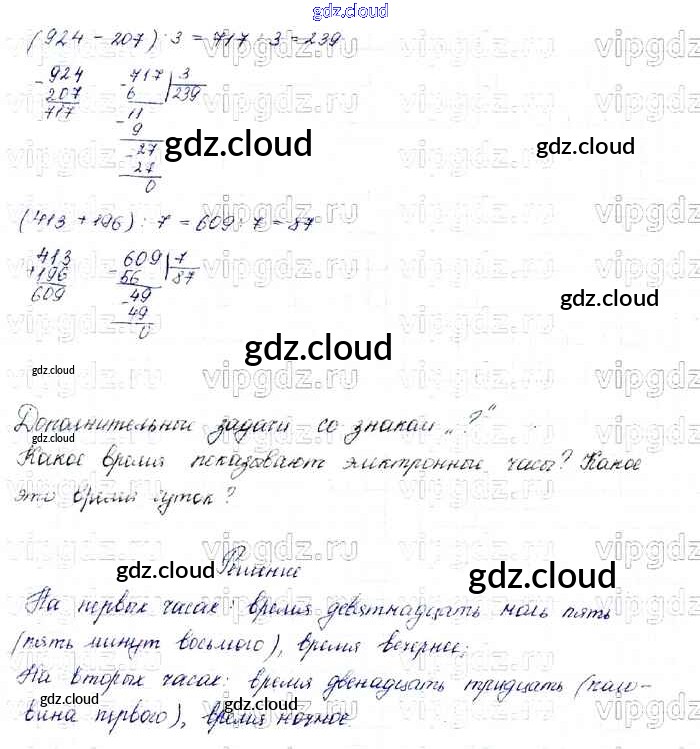 gdz.cloud
(924 - 207) : 3 = 717 : 3 = 239
- 924
207
717
- 717 | 3
6 239
- 11
9
- 27
27
0
gdz.cloud
(413 + 196) : 7 = 609 : 7 = 87
413
+ 196
609
- 609 | 7
56 87
- 49
49
0
gdz.cloud
gdz.cloud
gdz.cloud
Дополнительные задачи со знаком „?“
gdz.cloud
Какое время показывают электронные часы? Какое
это время суток?
Решение
gdz.cloud
gdz.cloud
На первых часах: время девятнадцать ноль пять
(пять минут восьмого), время вечернее;
На вторых часах: время двенадцать тридцать (поло-
вина первого), время ночное
gdz.cloud
gdz.cloud
vipgdz.ru